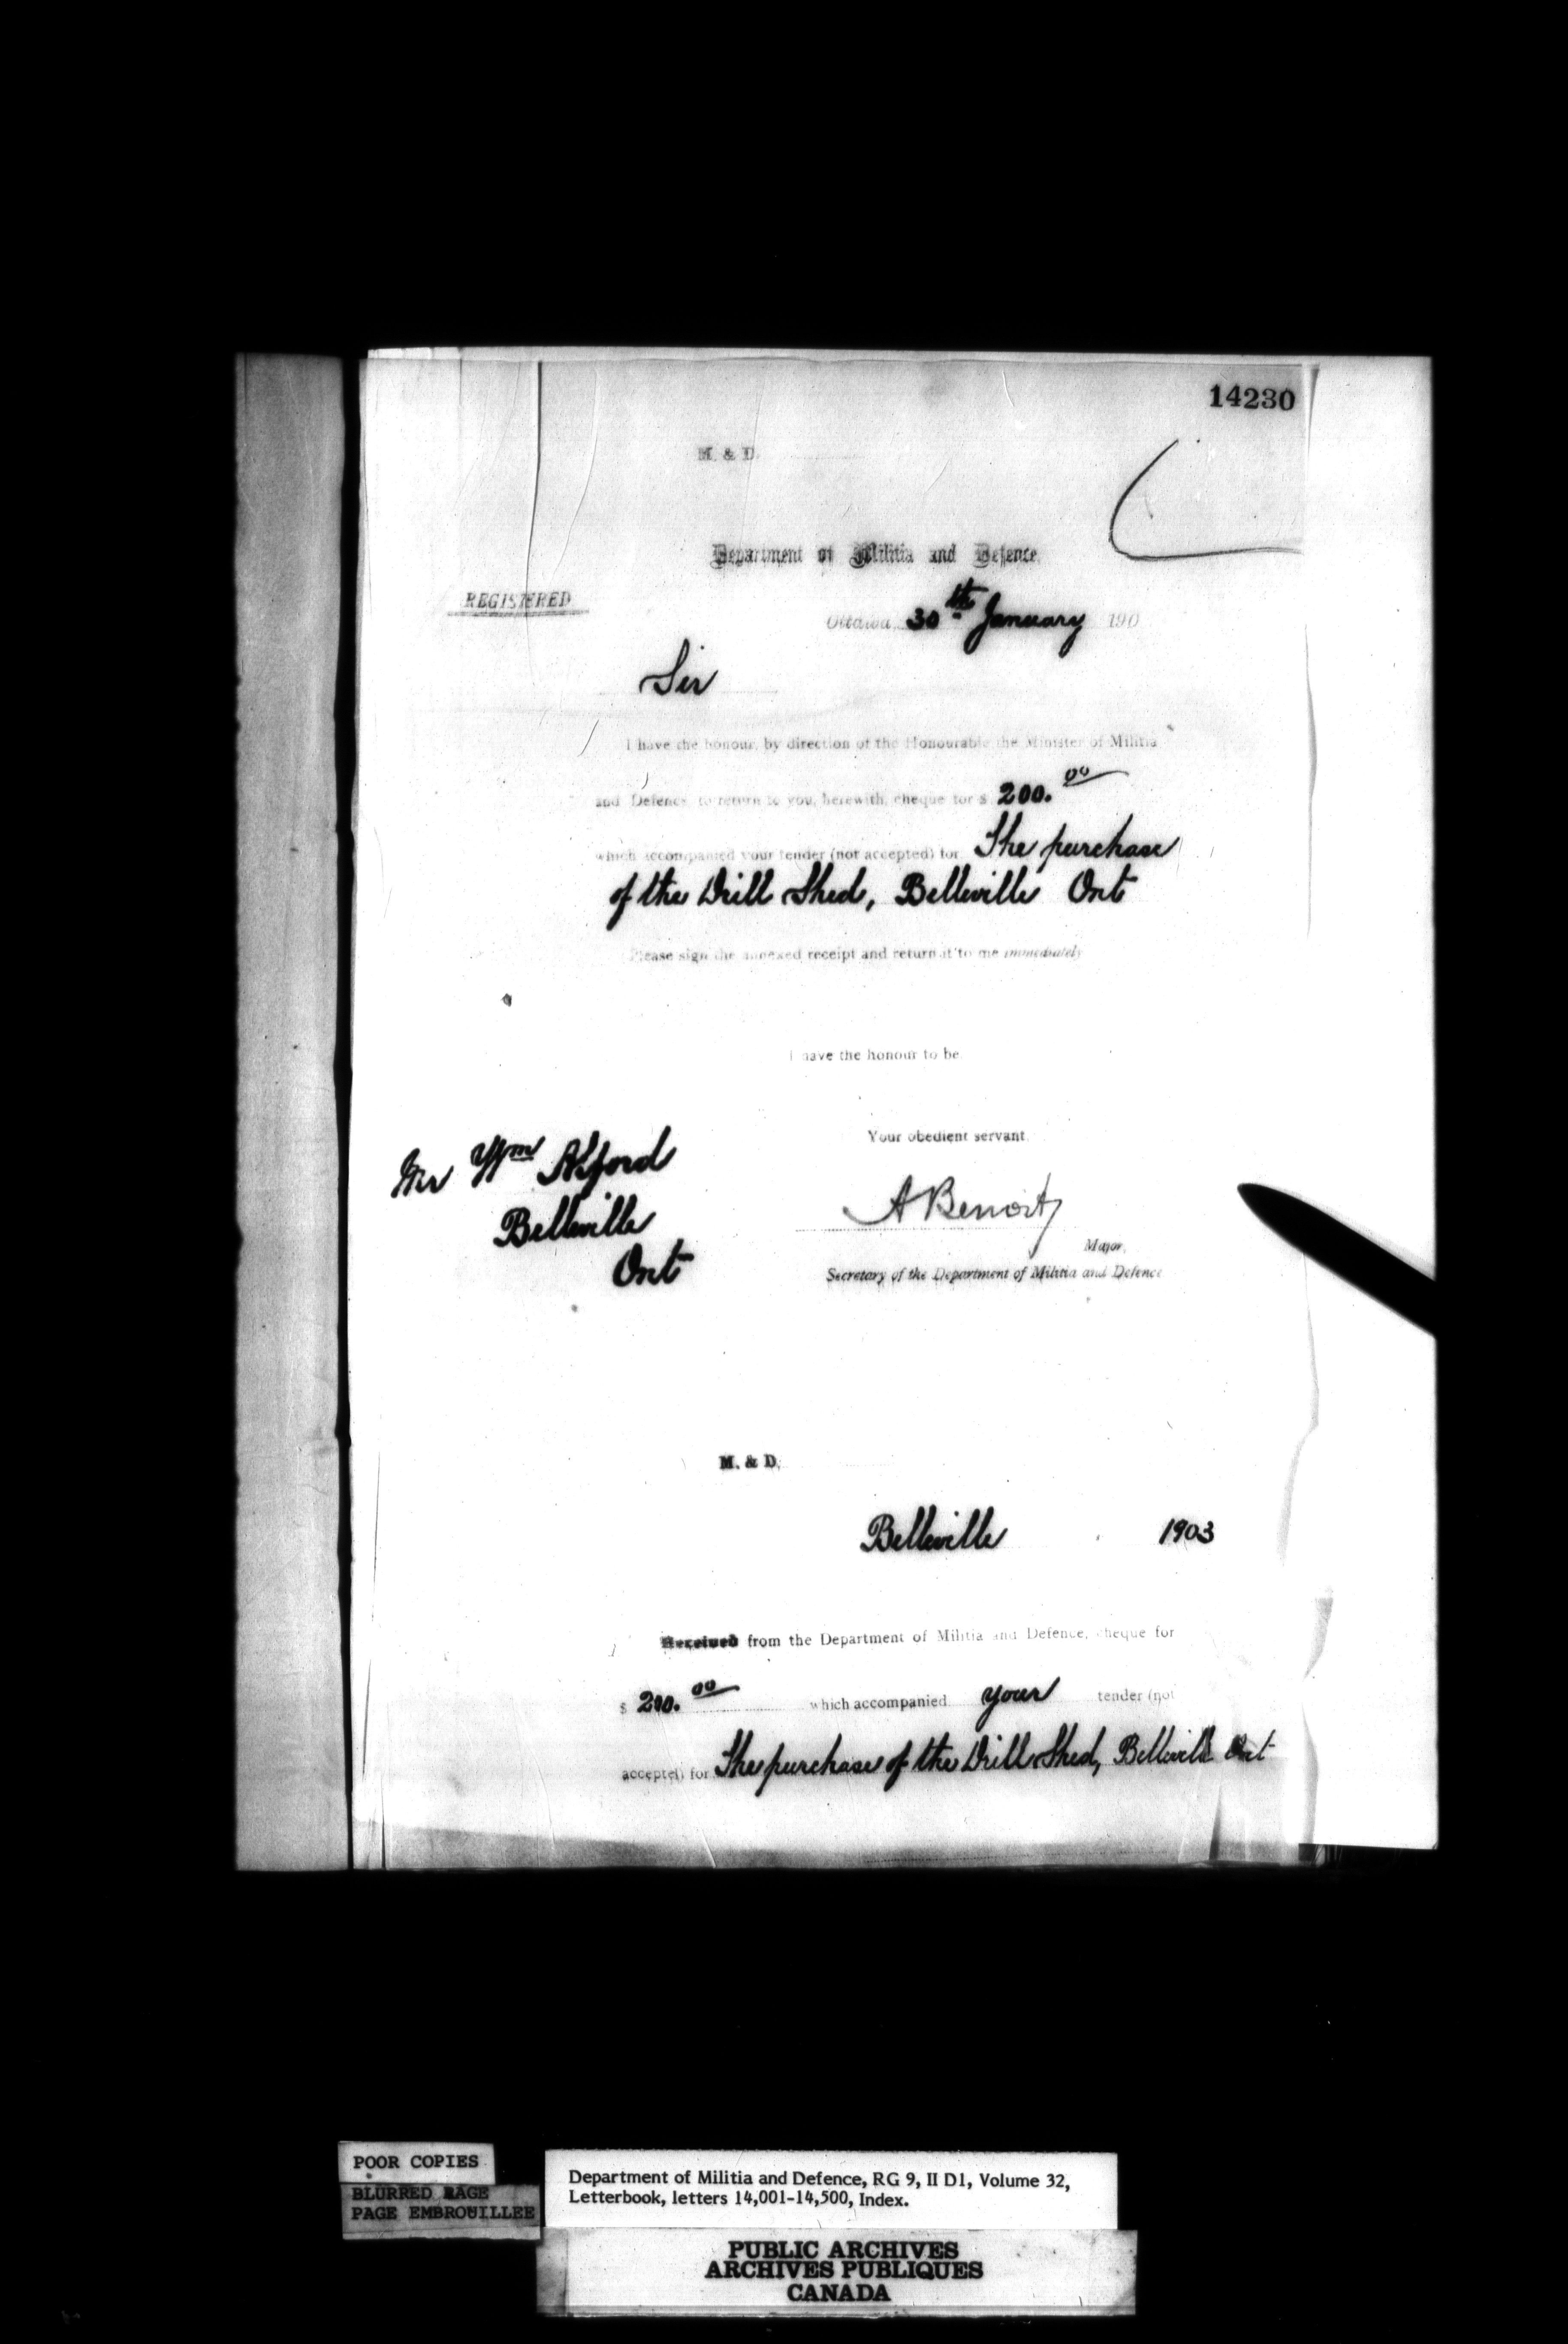 14230
M. & D.
Department of Militia and Defence,
REGISTERED
Ottawa, 30th January 190
Sir
I have the honour, by direction of the Honourable the Minister of Militia
and Defence, to return to you, herewith, cheque for $ 200.00
which accompanied your tender (not accepted) for The purchase
of the Drill Shed, Belleville Ont
Please sign the annexed receipt and return it to me immediately
I have the honour to be
Your obedient servant
Mr Wm Alford
Belleville
Ont
A Benoit
Major,
Secretary of the Department of Militia and Defence
M. & D.
Belleville 1903
Received from the Department of Militia and Defence, cheque for
$ 200.00 which accompanied your tender (not
accepted) for The purchase of the Drill Shed, Belleville Ont
POOR COPIES
BLURRED PAGE
PAGE EMBROUILLEE
Department of Militia and Defence, RG 9, II D1, Volume 32,
Letterbook, letters 14,001-14,500, Index.
PUBLIC ARCHIVES
ARCHIVES PUBLIQUES
CANADA